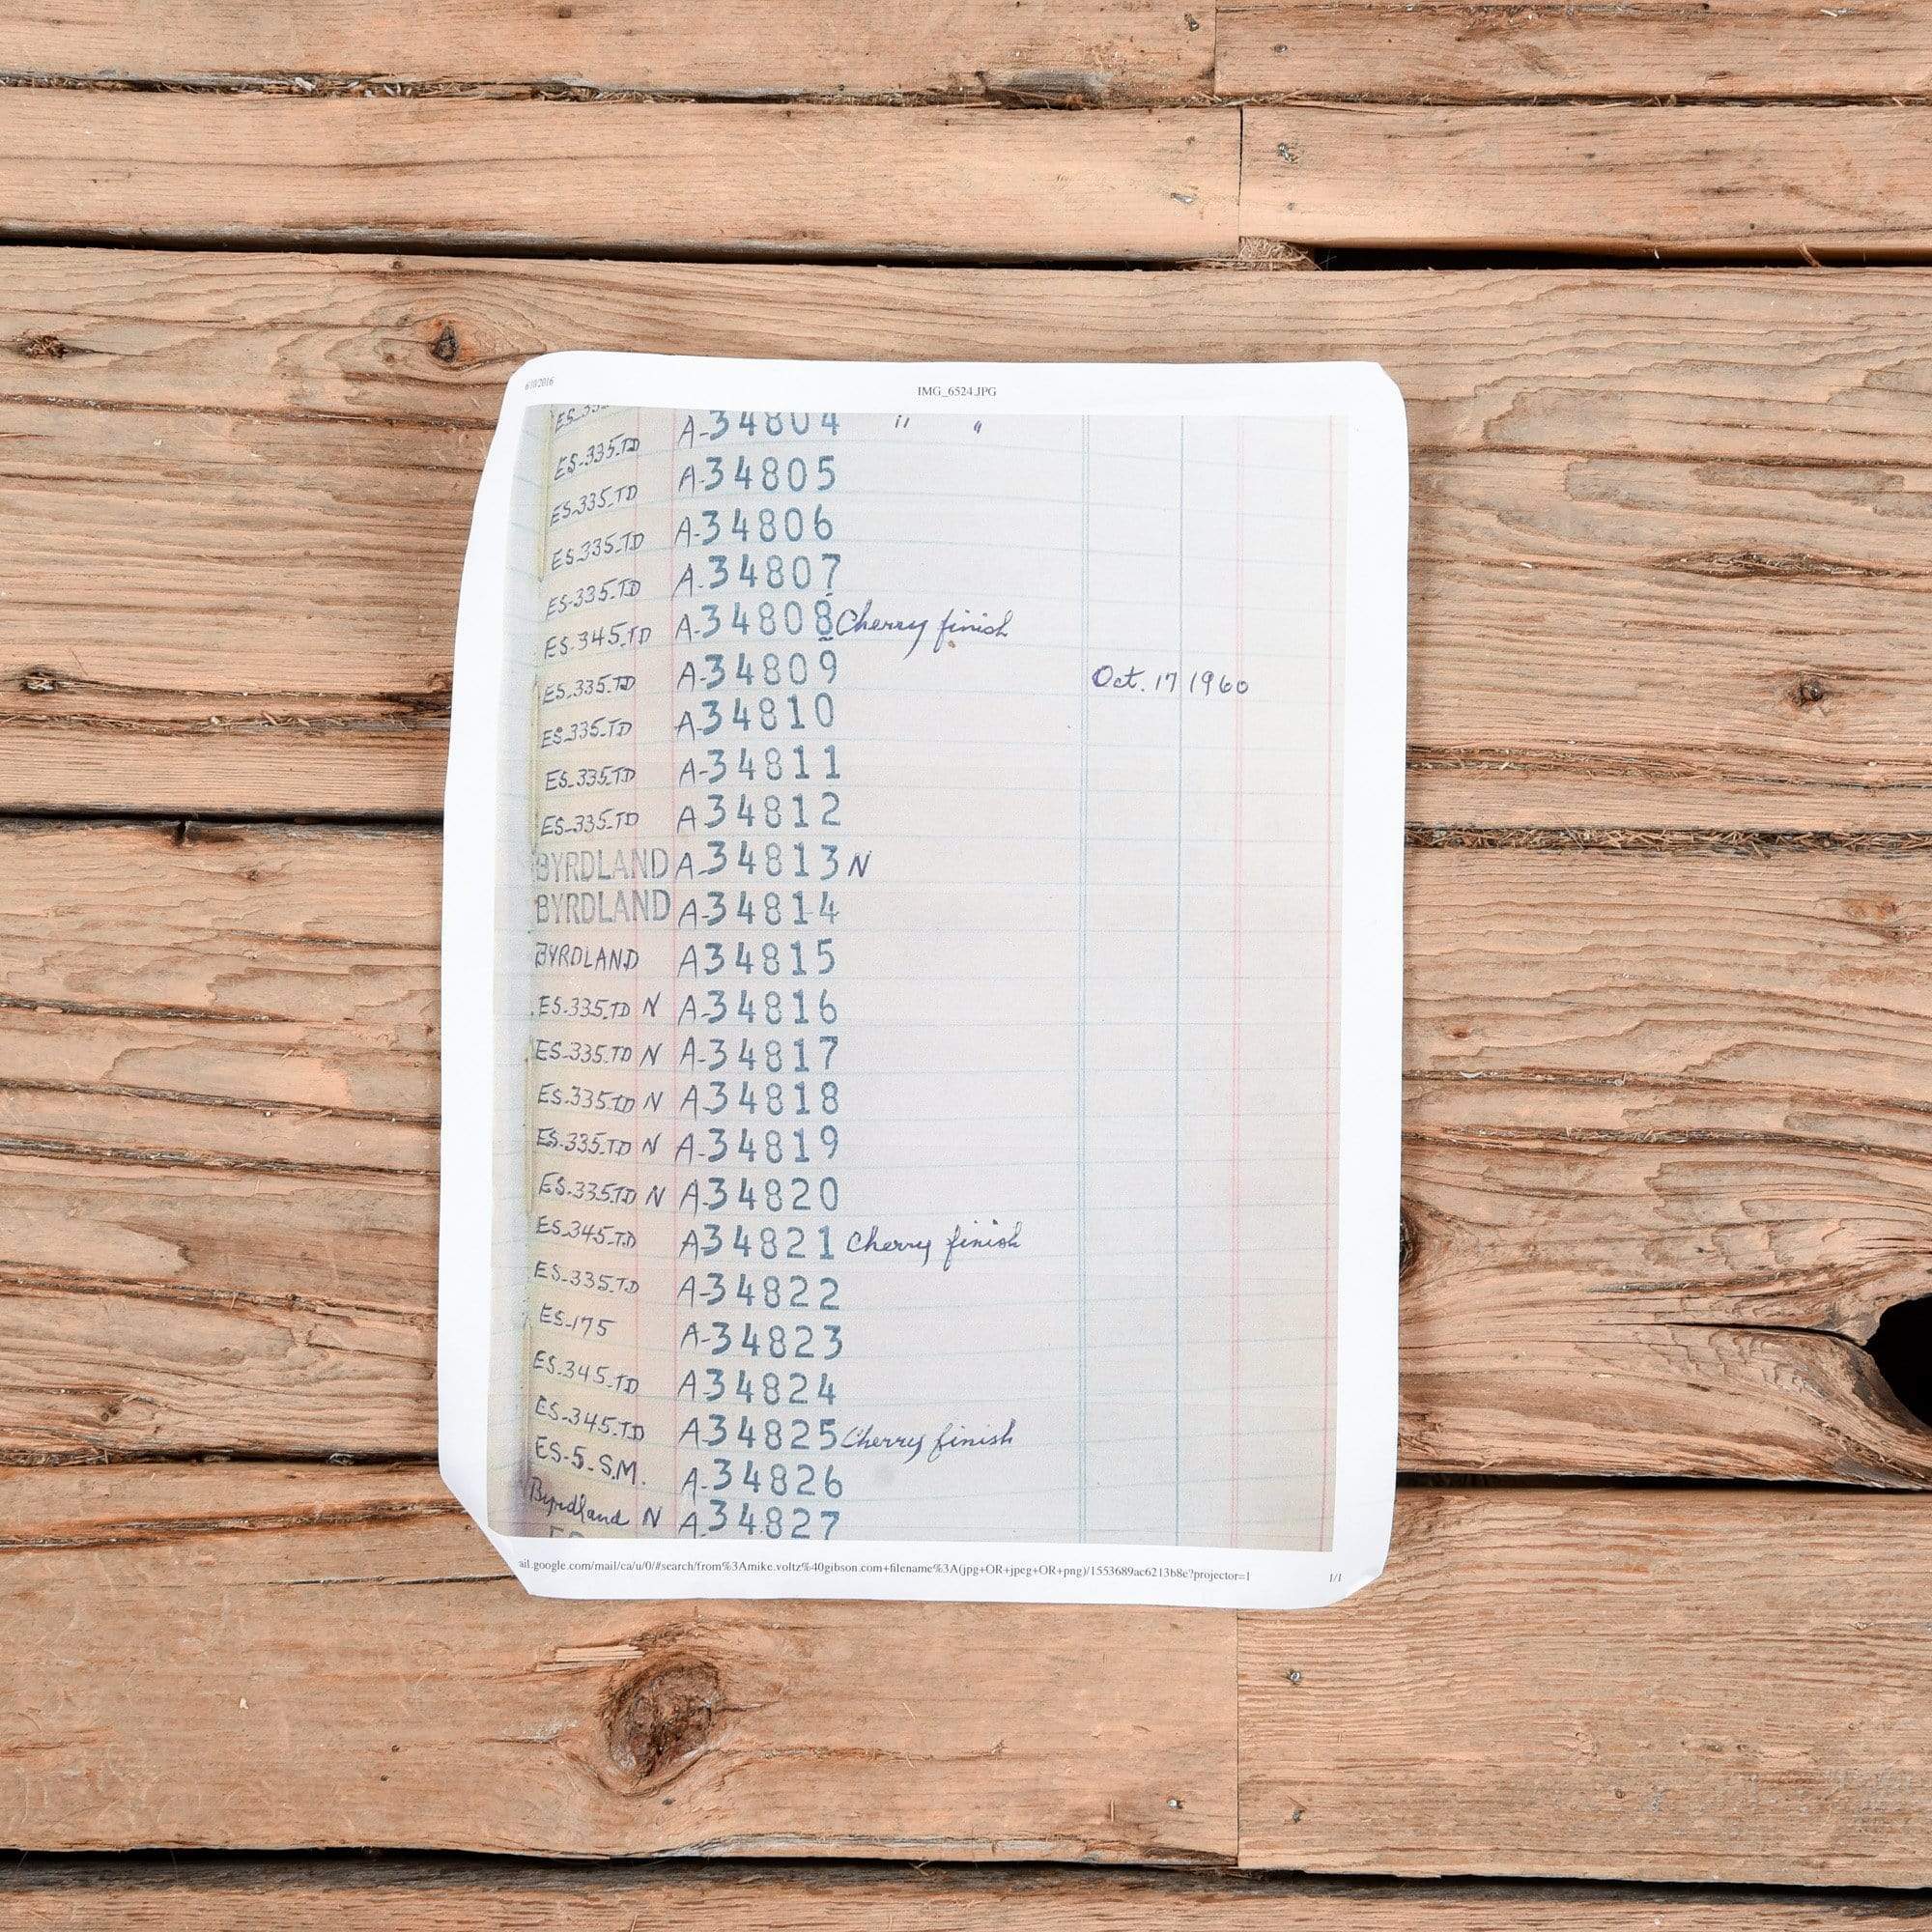 6/10/2016 IMG_6524.JPG
ES-335.TD A-34804 " "
ES-335.TD A-34805
ES-335-TD A-34806
ES-335-TD A-34807
ES-345.TD A-34808 Cherry finish
ES-335.TD A-34809 Oct. 17 1960
ES-335-TD A-34810
ES-335-TD A-34811
ES-335-TD A 34812
BYRDLAND A-34813 N
BYRDLAND A-34814
BYRDLAND A34815
ES-335.TD N A-34816
ES-335.TD N A-34817
ES-335.TD N A-34818
ES-335.TD N A-34819
ES-335.TD N A-34820
ES-345.TD A34821 Cherry finish
ES-335.TD A-34822
ES-175 A-34823
ES-345.TD A-34824
ES-345.TD A34825 Cherry finish
ES-5-S.M. A-34826
Byrdland N A-34827
ail.google.com/mail/ca/u/0/#search/from%3Amike.voltz%40gibson.com+filename%3A(jpg+OR+jpeg+OR+png)/1553689ac6213b8e?projector=1 1/1